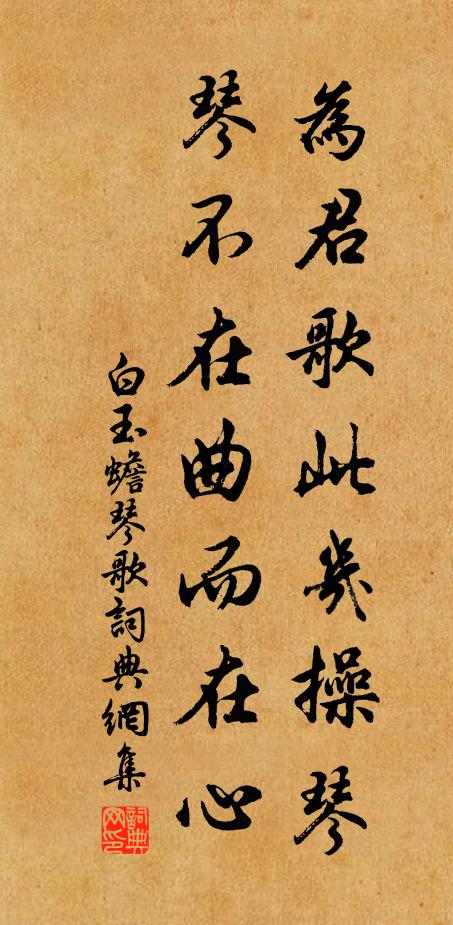 為君歌此幾操琴
琴不在曲而在心
白玉蟾琴歌詞典網集
詞典網印